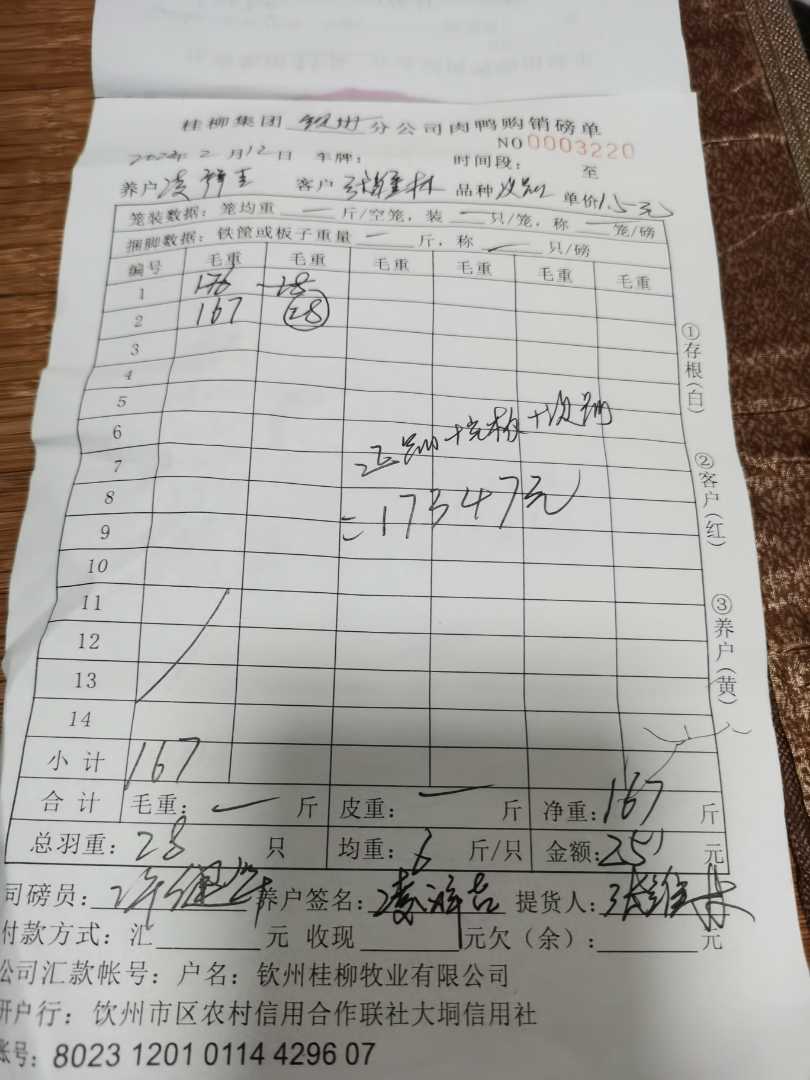 桂柳集团 钦州 分公司肉鸭购销磅单
NO 0003220
2022年2月12日 车牌: 时间段: 至
养户 凌 客户 张维林 品种 次鸭 单价 1.5元
笼装数据: 笼均重 — 斤/空笼, 装 — 只/笼, 称 — 笼/磅
捆脚数据: 铁筐或板子重量 — 斤, 称 — 只/磅
编号 毛重 毛重 毛重 毛重 毛重 毛重
1 28
2 167 28
3
4
5
6
正鸭+ +次鸭
7
8
=17347元
9
10
11
12
13
14
小计 167
合计 毛重: — 斤 皮重: — 斤 净重: 167 斤
总羽重: 28 只 均重: 6 斤/只 金额: 251 元
司磅员: 养户签名: 凌 提货人: 张维林
付款方式: 汇 元 收现 元欠(余): 元
公司汇款帐号: 户名: 钦州桂柳牧业有限公司
开户行: 钦州市区农村信用合作联社大垌信用社
帐号: 8023 1201 0114 4296 07
①存根(白)
②客户(红)
③养户(黄)